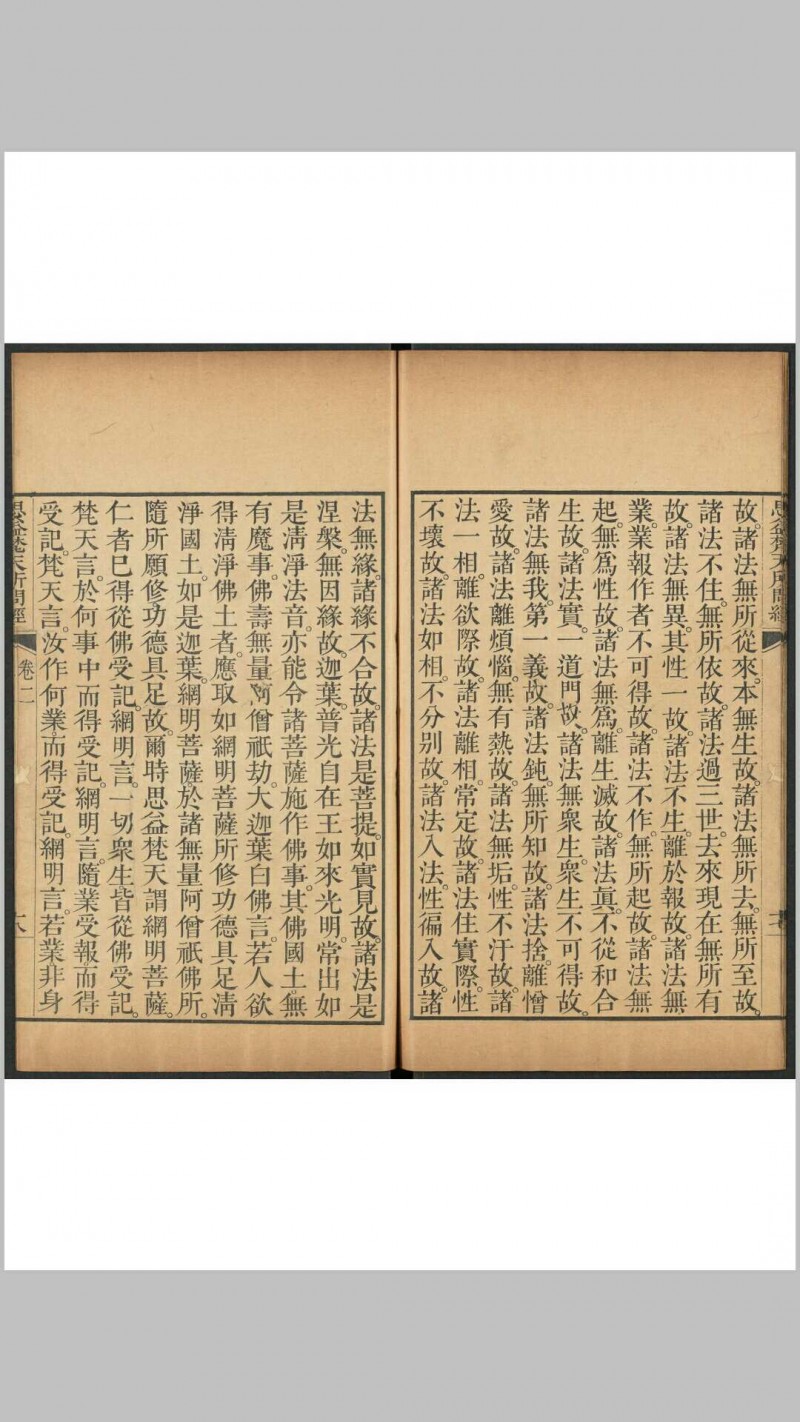 故。諸法無所從來。本無生故。諸法無所去。無所至故。
諸法不住。無所依故。諸法過三世。去來現在無所有
故。諸法無異。其性一故。諸法不生。離於報故。諸法無
業。業報作者不可得故。諸法不作。無所起故。諸法無
起。無爲性故。諸法無爲。離生滅故。諸法眞。不從和合
生故。諸法實。一道門故。諸法無衆生。衆生不可得故。
諸法無我。第一義故。諸法鈍。無所知故。諸法捨。離憎
愛故。諸法離煩惱。無有熱故。諸法無垢。性不汙故。諸
法一相。離欲際故。諸法離相。常定故。諸法住實際。性
不壞故。諸法如相。不分別故。諸法入法性。徧入故。諸
法無緣。諸緣不合故。諸法是菩提。如實見故。諸法是
涅槃。無因緣故。迦葉。普光自在王如來光明。常出如
是淸淨法音。亦能令諸菩薩施作佛事。其佛國土無
有魔事。佛壽無量阿僧祇劫。大迦葉白佛言。若人欲
得淸淨佛土者。應取如網明菩薩所修功德具足淸
淨國土。如是迦葉。網明菩薩於諸無量阿僧祇佛所。
隨所願修功德具足故。爾時思益梵天謂網明菩薩。
仁者已得從佛受記。網明言。一切衆生皆從佛受記。
梵天言。於何事中而得受記。網明言。隨業受報而得
受記。梵天言。汝作何業而得受記。網明言。若業非身
思益梵天所問經
卷二